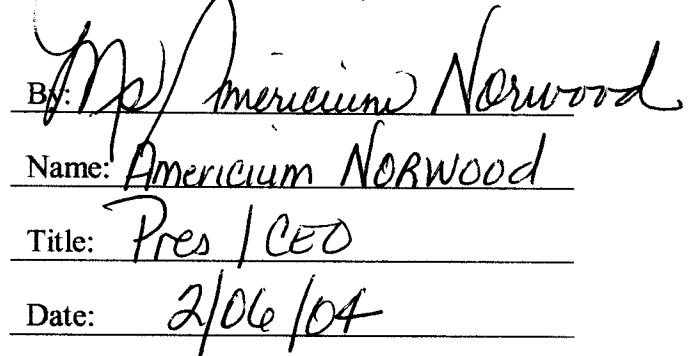 By: Ms Americium Norwood
Name: Americium Norwood
Title: Pres / CEO
Date: 2/06/04